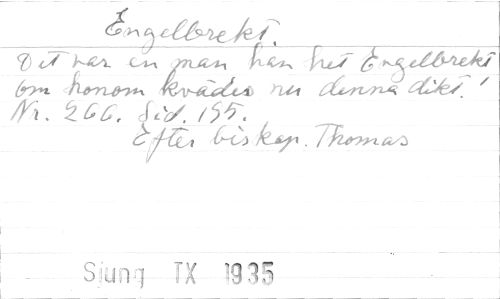 Engelbrekt.
Det var en man han het Engelbrekt
om honom kvädes nu denna dikt.
Nr. 266. Sid. 195.
Efter biskop. Thomas
Sjung TX 1935